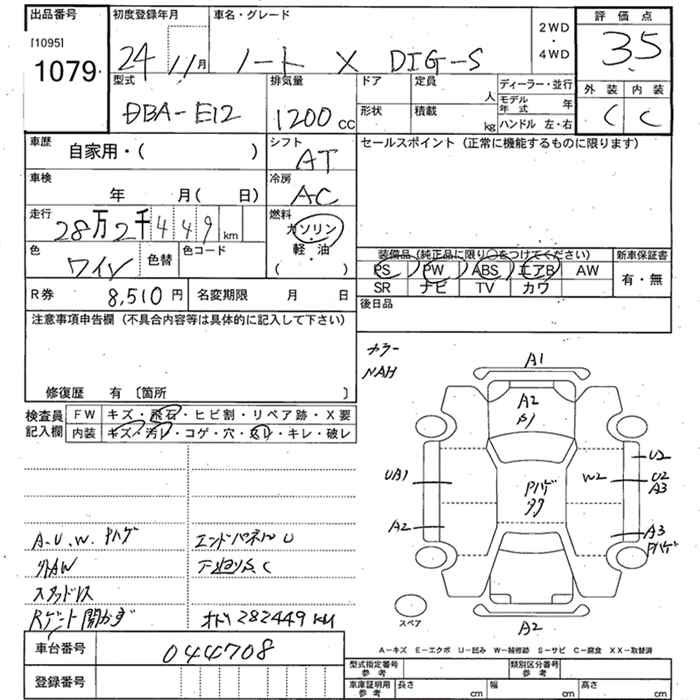 出品番号 初度登録年月 車名・グレード 2WD・4WD 評価点
[1095] 1079 24 11月 ノート X DIG-S 3.5
外装 内装
C C
型式 排気量 ドア 定員 人 ディーラー・並行
DBA-E12 1200cc 形状 積載 kg モデル年式 年
ハンドル 左・右
車歴 自家用・( ) シフト AT セールスポイント (正常に機能するものに限ります)
車検 年 月( 日) 冷房 AC
走行 28万2千449km 燃料 ガソリン
軽・油
( )
色 ワイン 色替 色コード
装備品 (純正品に限り○をつけてください) 新車保証書
PS PW ABS エアB AW 有・無
SR ナビ TV カワ
R券 8,510円 名変期限 月 日 後日品
注意事項申告欄 (不具合内容等は具体的に記入して下さい)
修復歴 有 [箇所 ]
カラー
NAH
検査員記入欄 FW キズ・飛石・ヒビ割・リペア跡・X要
内装 キズ・汚レ・コゲ・穴・スレ・キレ・破レ
A1
A2
UA1
A2
W2
U2
U2
A3
A3
Pハゲ
Pハゲ
A2
A.U.W.Pハゲ エンドパネルU
外AW 下廻りS.C
スタッドレス
Rゲート開かず オドメ282449km
スペア
A-キズ E-エクボ U-凹み W-補修跡 S-サビ C-腐食 XX-取替済
車台番号 044708
登録番号
型式指定番号 参考 類別区分番号 参考
車庫証明用 参考 長さ cm 幅 cm 高さ cm